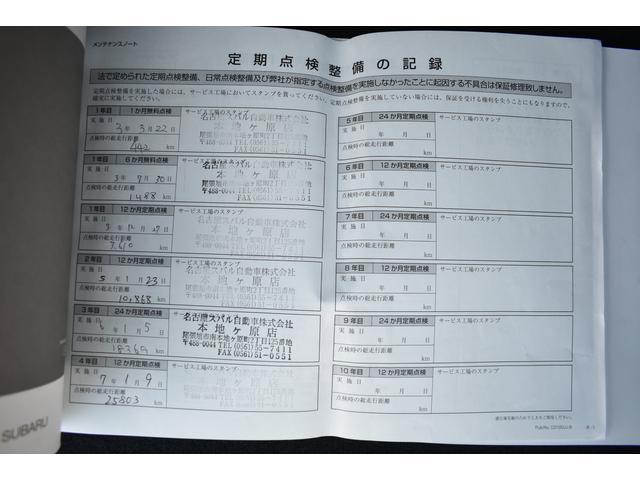 メンテナンスノート
定期点検整備の記録
法で定められた定期点検整備、日常点検整備及び弊社が指定する点検整備を実施しなかったことに起因する不具合は保証修理致しません。
定期点検整備を実施した場合には、サービス工場においてスタンプを貰ってください。定期点検整備を実施していない場合には、保証を受ける権利を失うこともありますので、
確実に実施してください。
1年目 1か月無料点検 サービス工場のスタンプ
実施日
3年3月22日
点検時の総走行距離
442 km
名古屋スバル自動車株式会社
本地ヶ原店
尾張旭市南本地ヶ原町2丁目125番地
〒488-0044 TEL(0561)55-7411
FAX(0561)51-0551
1年目 6か月無料点検 サービス工場のスタンプ
実施日
3年7月30日
点検時の総走行距離
1488 km
名古屋スバル自動車株式会社
本地ヶ原店
尾張旭市南本地ヶ原町2丁目125番地
〒488-0044 TEL(0561)55-7411
FAX(0561)51-0551
1年目 12か月定期点検 サービス工場のスタンプ
実施日
3年12月27日
点検時の総走行距離
km
名古屋スバル自動車株式会社
本地ヶ原店
2年目 12か月定期点検 サービス工場のスタンプ
実施日
5年1月23日
点検時の総走行距離
10,868 km
名古屋スバル自動車株式会社
本地ヶ原店
3年目 24か月定期点検 サービス工場のスタンプ
実施日
6年1月5日
点検時の総走行距離
18369 km
名古屋スバル自動車株式会社
本地ヶ原店
尾張旭市南本地ヶ原町2丁目125番地
〒488-0044 TEL(0561)55-7411
FAX(0561)51-0551
4年目 12か月定期点検 サービス工場のスタンプ
実施日
7年1月9日
点検時の総走行距離
25803 km
5年目 24か月定期点検 サービス工場のスタンプ
実施日
年 月 日
点検時の総走行距離
km
6年目 12か月定期点検 サービス工場のスタンプ
実施日
年 月 日
点検時の総走行距離
km
7年目 24か月定期点検 サービス工場のスタンプ
実施日
年 月 日
点検時の総走行距離
km
8年目 12か月定期点検 サービス工場のスタンプ
実施日
年 月 日
点検時の総走行距離
km
9年目 24か月定期点検 サービス工場のスタンプ
実施日
年 月 日
点検時の総走行距離
km
10年目 12か月定期点検 サービス工場のスタンプ
実施日
年 月 日
点検時の総走行距離
km
SUBARU